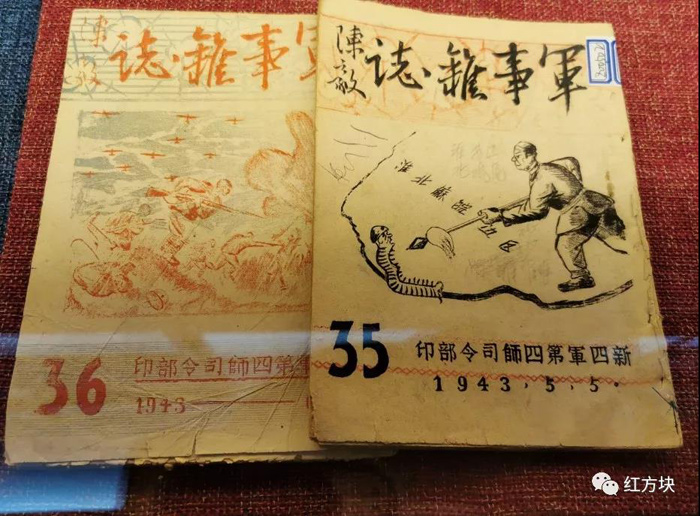 軍事雜誌
陳毅
35
新四軍第四師司令部印
1943.5.5.
事雜誌
陳毅
36
軍第四師司令部印
1943
红方块